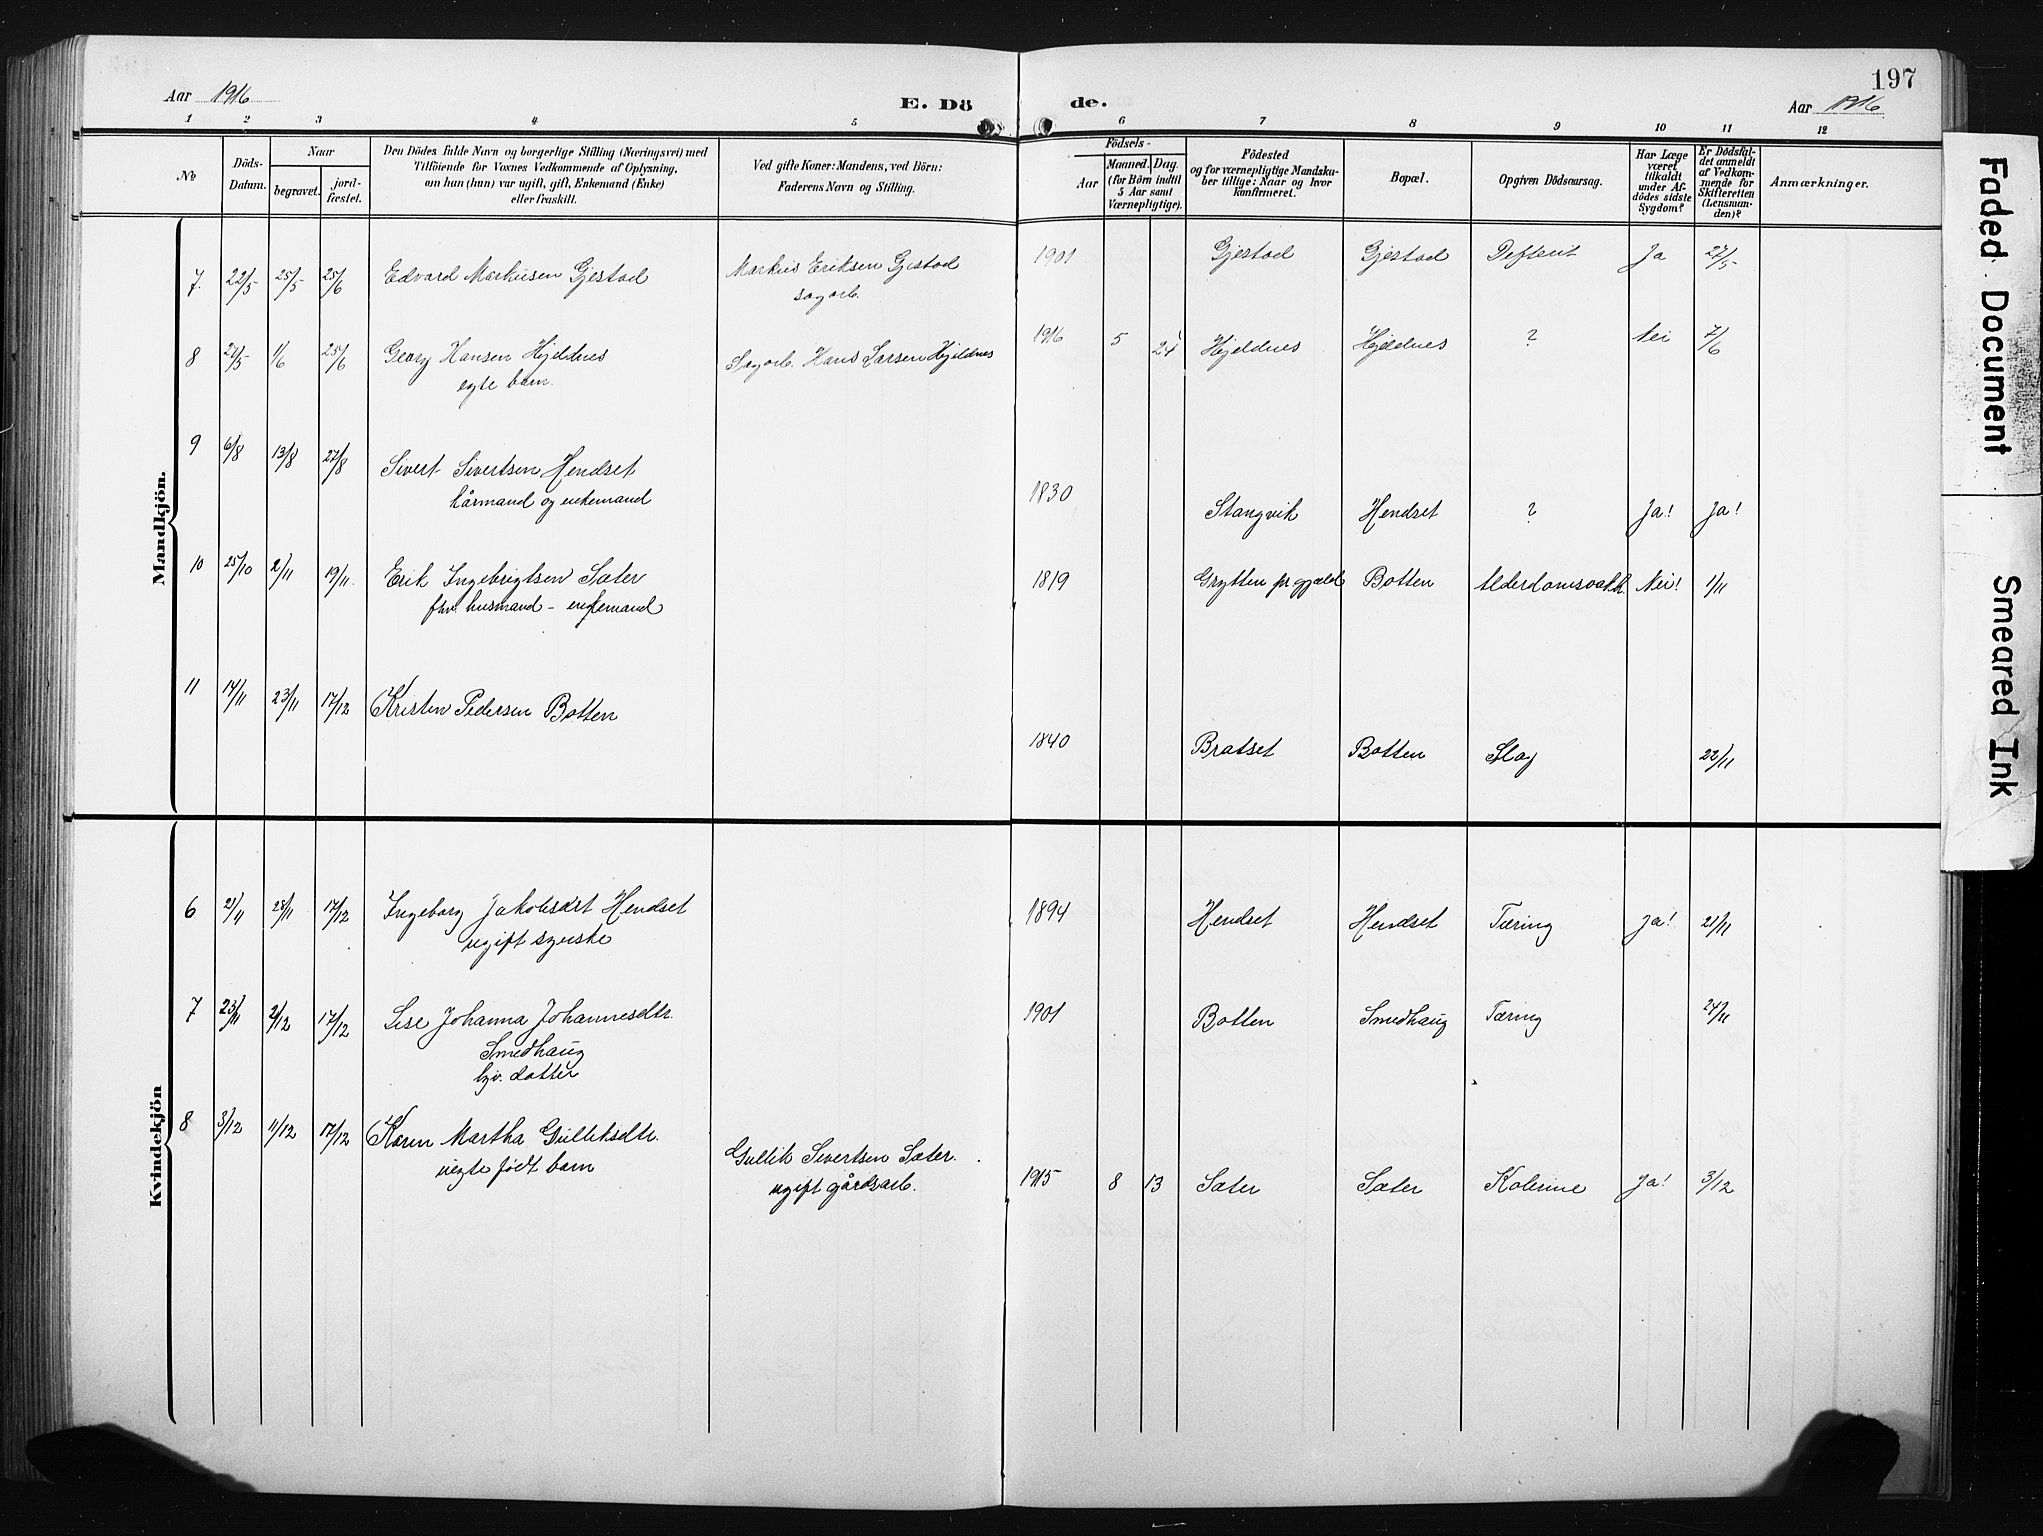 197
Aar 1916
E. Dö
de.
Aar 1916
1 2 3 4 5 6 7 8 9 10 11 12
No
Döds-
Datum.
Naar
begravet.
jord-
fæstet.
Den Dödes fulde Navn og borgerlige Stilling (Næringsvei) med
Tilföiende for Voxnes Vedkommende af Oplysning,
om han (hun) var ugift, gift, Enkemand (Enke)
eller fraskilt.
Ved gifte Koner: Mandens, ved Börn:
Faderens Navn og Stilling.
Födsels-
Aar
Maaned. Dag.
(for Börn indtil
5 Aar samt
Værnepligtige).
Födested
og for værnepligtige Mandska-
ber tillige: Naar og hvor
konfirmeret.
Bopæl.
Opgiven Dödsaarsag.
Har Læge
været
tilkaldt
under Af-
dödes sidste
Sygdom?
Er Dödsfal-
det anmeldt
af Vedkom-
mende for
Skifteretten
(Lensman-
den)?
Anmærkninger.
Mandkjön.
7. 22/5 25/5 25/6 Edvard Markusen Gjestad Markus Eriksen Gjestad 1901 Gjestad Gjestad Ja 27/5
sagarb.
8 27/5 1/6 25/6 Georg Hansen Hjeldnes Sagarb. Hans Larsen Hjeldnes 1916 5 24 Hjeldnes Hjeldnes ? Nei 7/6
egte barn.
9 6/8 13/8 27/8 Sivert Sivertsen Hendset
kårmand og enkemand 1830 Stangvik Hendset ? Ja! Ja!
10 25/10 2/11 19/11. Erik Ingebrigtsen Sæter 1819 Grytten pr.gjeld Botten Alderdomsvakh. Nei! 1/11
fhv. husmand - enkemand
11 14/11 23/11 17/12 Kristen Pedersen Botten
1840 Bratset Botten Slag 22/11
Kvindekjön
6 21/11 28/11 17/12 Ingeborg Jakobsdt Hendset 1894 Hendset Hendset Tæring Ja! 21/11
ugift syerske
7 23/11 2/12 17/12 Lise Johanna Johannesdtr. 1901 Botten Smedhaug Tæring 24/11
Smedhaug
datter
8 3/12 11/12 17/12 Karen Martha Gulliksdtr.
uegte født barn Gullik Sivertsen Sæter. 1915 8 13 Sæter Sæter Kolerine Ja! 3/12
ugift gårdsarb.
Faded Document
Smeared Ink